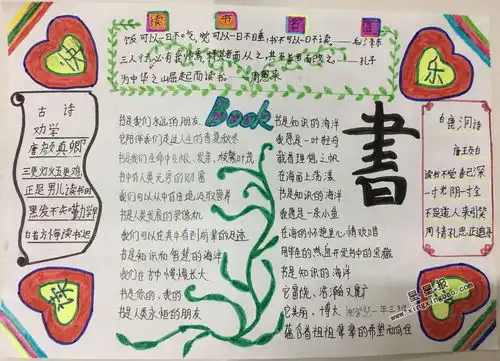 读 书 名 言
饭可以一日不吃,觉可以一日不睡,书不可以一日不读——毛泽东
三人行必有我师焉,择其善者而从之,其不善者而改之。——孔子
为中华之崛起而读书——周恩来
快
乐
古诗
劝学
唐 颜真卿
三更灯火五更鸡
正是男儿读书时
黑发不知勤学早
白首方悔读书迟
Book
书是我们永远的朋友
它陪伴我们走过人生的春夏秋冬
书中有人类无穷的财富
我们可以从中自由地汲取营养
我们可以在其中看到前辈的足迹
书是知识和智慧的海洋
我们在书中慢慢长大
书是你的、我的
书是人类永恒的朋友
书是知识的海洋
我愿是一叶轻舟
载着理想之帆
在海面上荡漾
书是知识的海洋
我愿是一条小鱼
在海的怀抱里心情欢唱
书是知识的海洋
它美丽、博大
蕴含着祖祖辈辈的希望和向往
書
白鹿洞诗
唐 王贞白
读书不觉春已深
一寸光阴一寸金
不是道人来引笑
周情孔思正追寻
星星报
www.xingxingbao.com